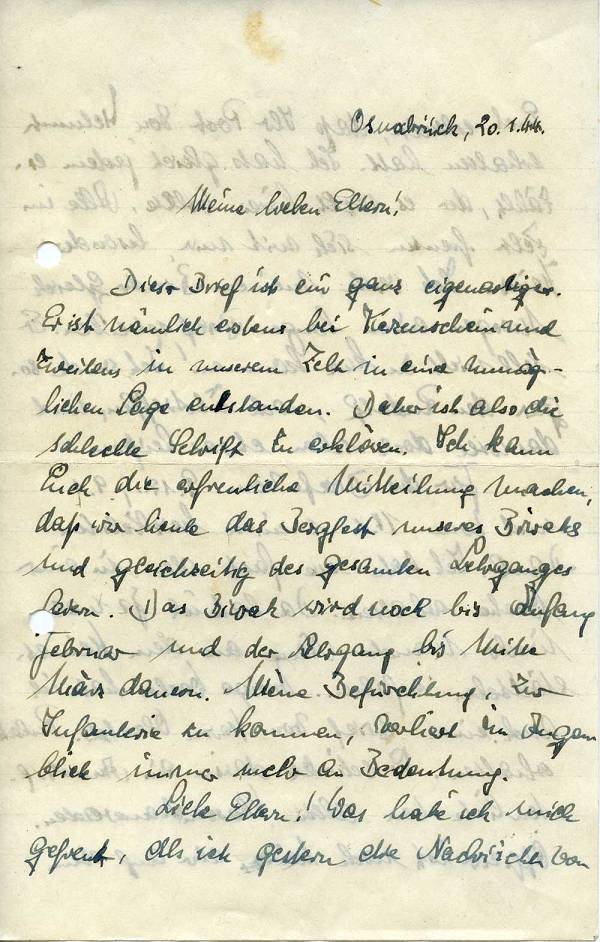 Osnabrück, 20.1.44.
Meine lieben Eltern!
Dieser Brief ist ein ganz eigenartiger.
Er ist nämlich erstens bei Kerzenschein und
zweitens in unserem Zelt in einer unmög-
lichen Lage entstanden. Daher ist also die
schlechte Schrift zu erklären. Ich kann
Euch die erfreuliche Mitteilung machen,
daß wir heute das Bergfest unseres Biwaks
und gleichzeitig des gesamten Lehrganges
feiern. Das Biwak wird noch bis Anfang
Februar und der Lehrgang bis Mitte
März dauern. Meine Befürchtung, zur
Infanterie zu kommen, verliert im Augen
blick immer mehr an Bedeutung.
Liebe Eltern! Was habe ich mich
gefreut, als ich gestern die Nachricht von